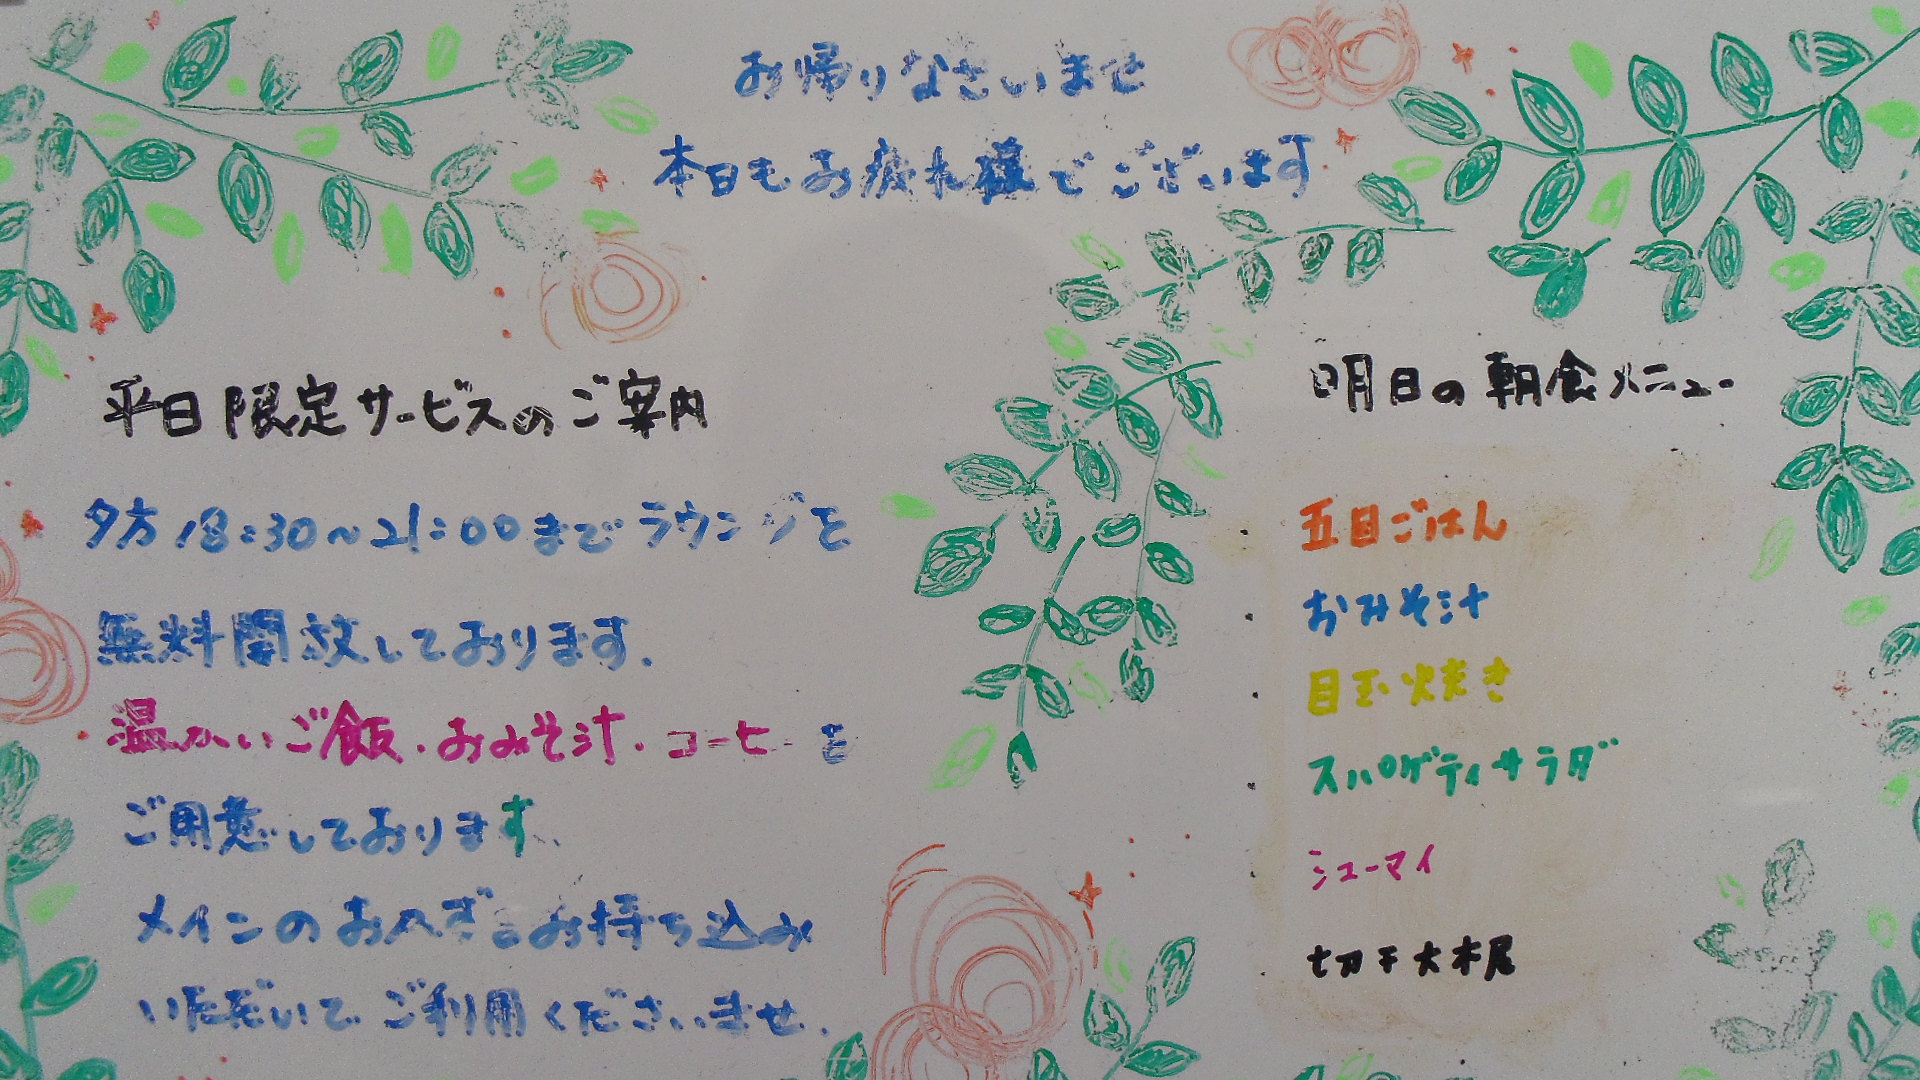 お帰りなさいませ
本日もお疲れ様でございます
平日限定サービスのご案内
夕方18:30~21:00までラウンジを
無料開放しております.
温かいご飯.おみそ汁.コーヒーを
ご用意しております.
メインのおかずをお持ち込み
いただいて ご利用くださいませ.
明日の朝食メニュー
五目ごはん
おみそ汁
目玉焼き
スパゲティサラダ
シューマイ
切干大根